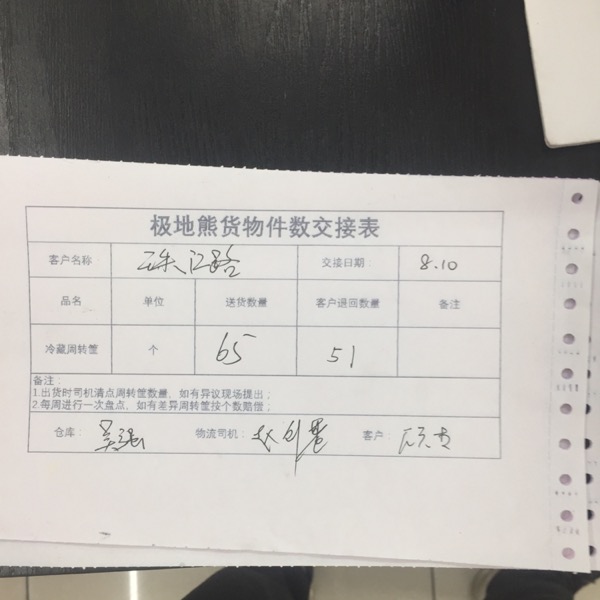 极地熊货物件数交接表
客户名称 珠江路 交接日期 8.10
品名 单位 送货数量 客户退回数量 备注
冷藏周转筐 个 65 51
备注：
1.出货时司机清点周转筐数量，如有异议现场提出；
2.每周进行一次盘点，如有差异周转筐按个数赔偿；
仓库： 吴强 物流司机： 客户